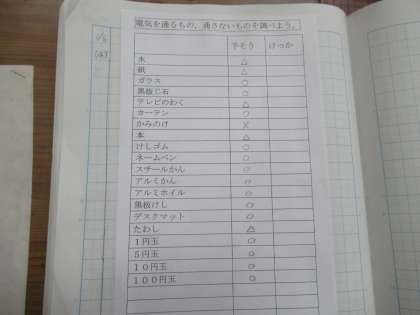 電気を通るもの、通さないものを調べよう。
予そう けっか
水 △
紙 △
ガラス ○
黒板じ石 ○
テレビのわく △
カーテン ○
かみのけ ×
本 △
けしゴム ○
ネームペン ○
スチールかん ○
アルミかん ○
アルミホイル ○
黒板けし ○
デスクマット ○
たわし △
1円玉 ○
5円玉 ○
10円玉 ○
100円玉 ○